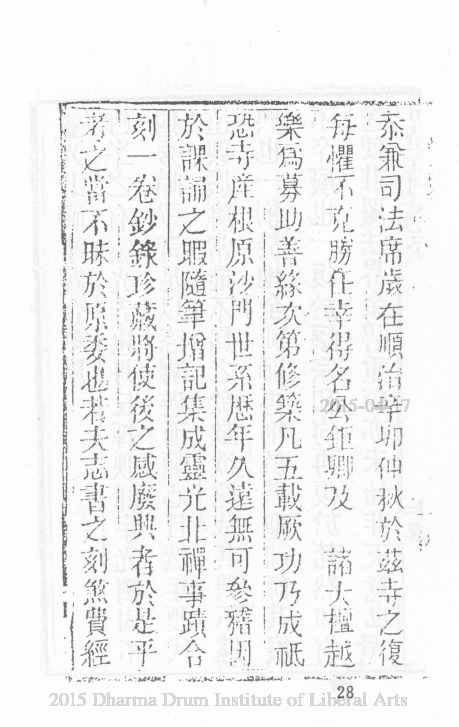 忝兼司法席歲在順治辛卯仲秋於茲寺之復
每懼不克勝任幸得名公鉅卿及 諸大檀越
樂為募助善緣次第修築凡五載厥功乃成祗
恐寺產根原沙門世系歷年久遠無可參稽因
於課誦之暇隨筆增記集成靈光北禪事蹟合
刻一卷鈔錄珍藏將使後之感廢興者於是乎
考之當不昧於原委也若夫志書之刻煞費經
28
2015 Dharma Drum Institute of Liberal Arts